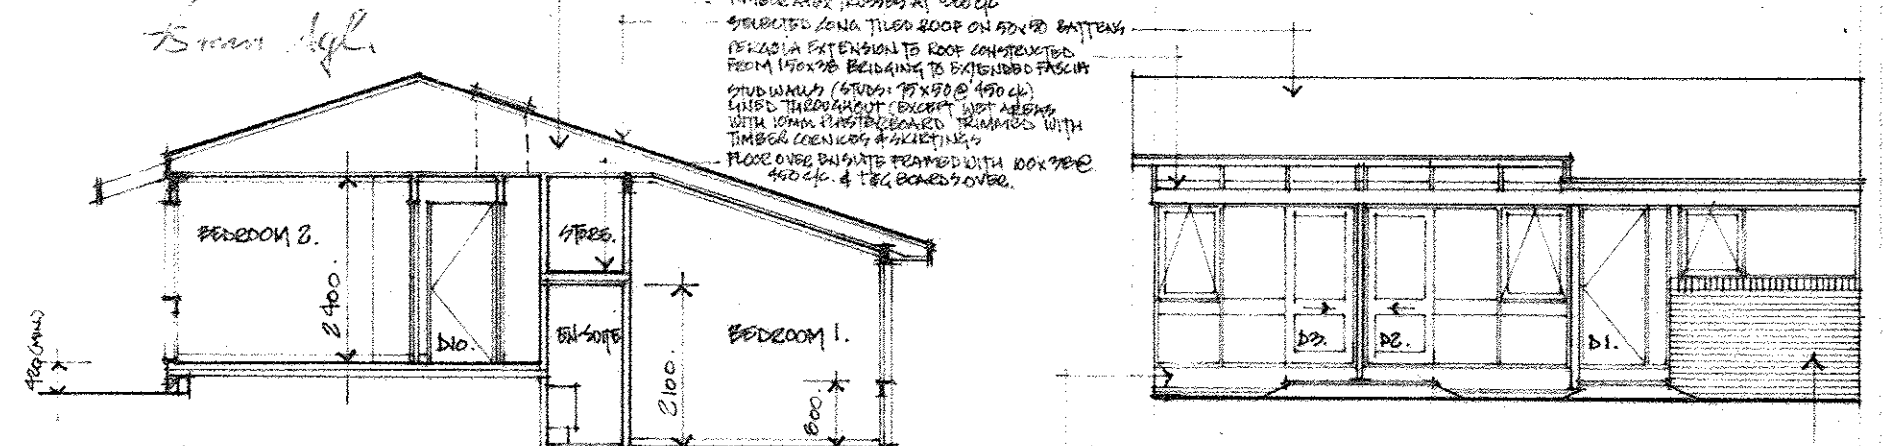 SELECTED LONG TILED ROOF ON 50x50 BATTENS
PERGOLA EXTENSION TO ROOF CONSTRUCTED
FROM 150x38 BRIDGING TO EXTENDED FASCIA
STUD WALLS (STUDS: 75x50@ 450 c/c)
LINED THROUGHOUT (EXCEPT WET AREAS
WITH 10mm PLASTERBOARD TRIMMED WITH
TIMBER CORNICES & SKIRTINGS
FLOOR OVER ENSUITE FRAMED WITH 100x38@
450 c/c. & T&G BOARDS OVER.
BEDROOM 2.
STORE.
2400.
D10.
EN-SUITE
BEDROOM 1.
2100.
800.
420 (MIN.)
D3.
D2.
D1.